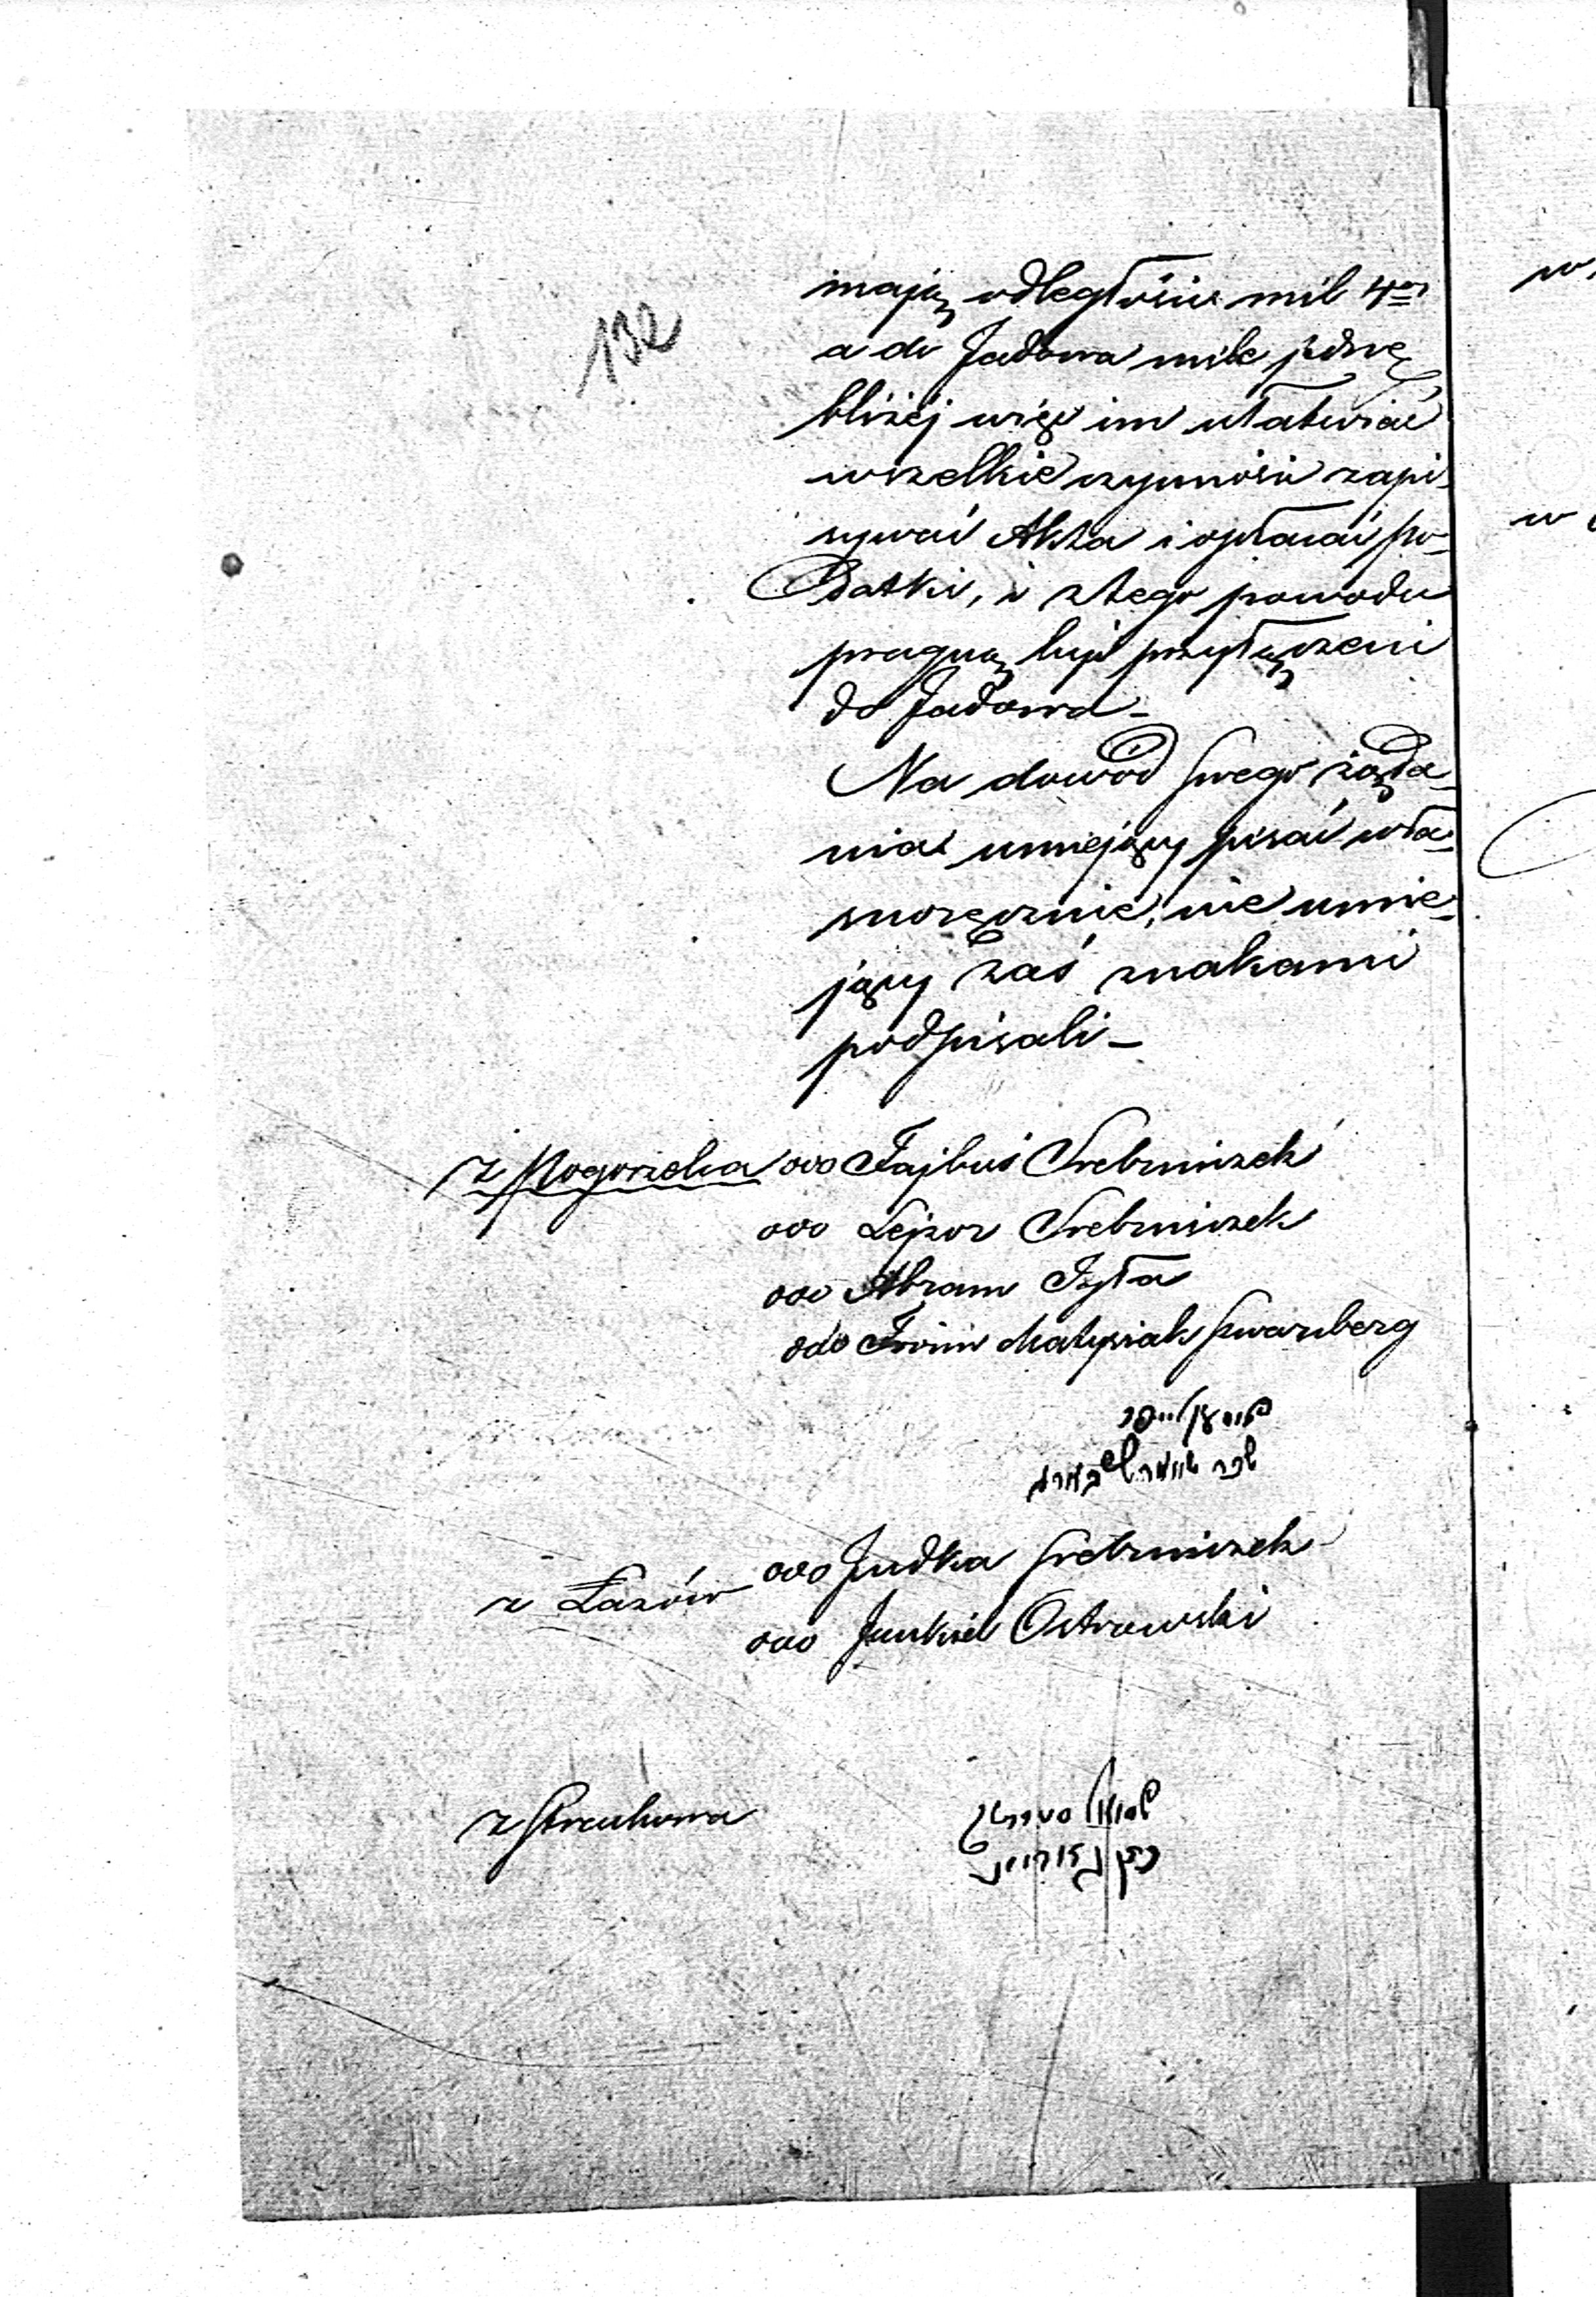 132
mają odległości mil 4ry
a do Jadowa milę jednę
bliżéj więc im ułatwiać
wszelkie czynności zapi-
sywać Akta i opłacać po-
datki, i z tego powodu
pragną być przyłączeni
do Jadowa –
Na dowód swego żąda-
nia umiejący pisać wła-
snoręcznie, nie umie-
jący zaś znakami
podpisali –
z Pogorzelca ooo Fajbuś Srebrniczek
ooo Lejzor Srebrniczek
ooo Abram Jzyła
ooo Froim Matysiak Szwarcberg
ooo Judka Srebrniczek
z Łazów
ooo Jankiel Ostrowski
z Strachowa
שמואל